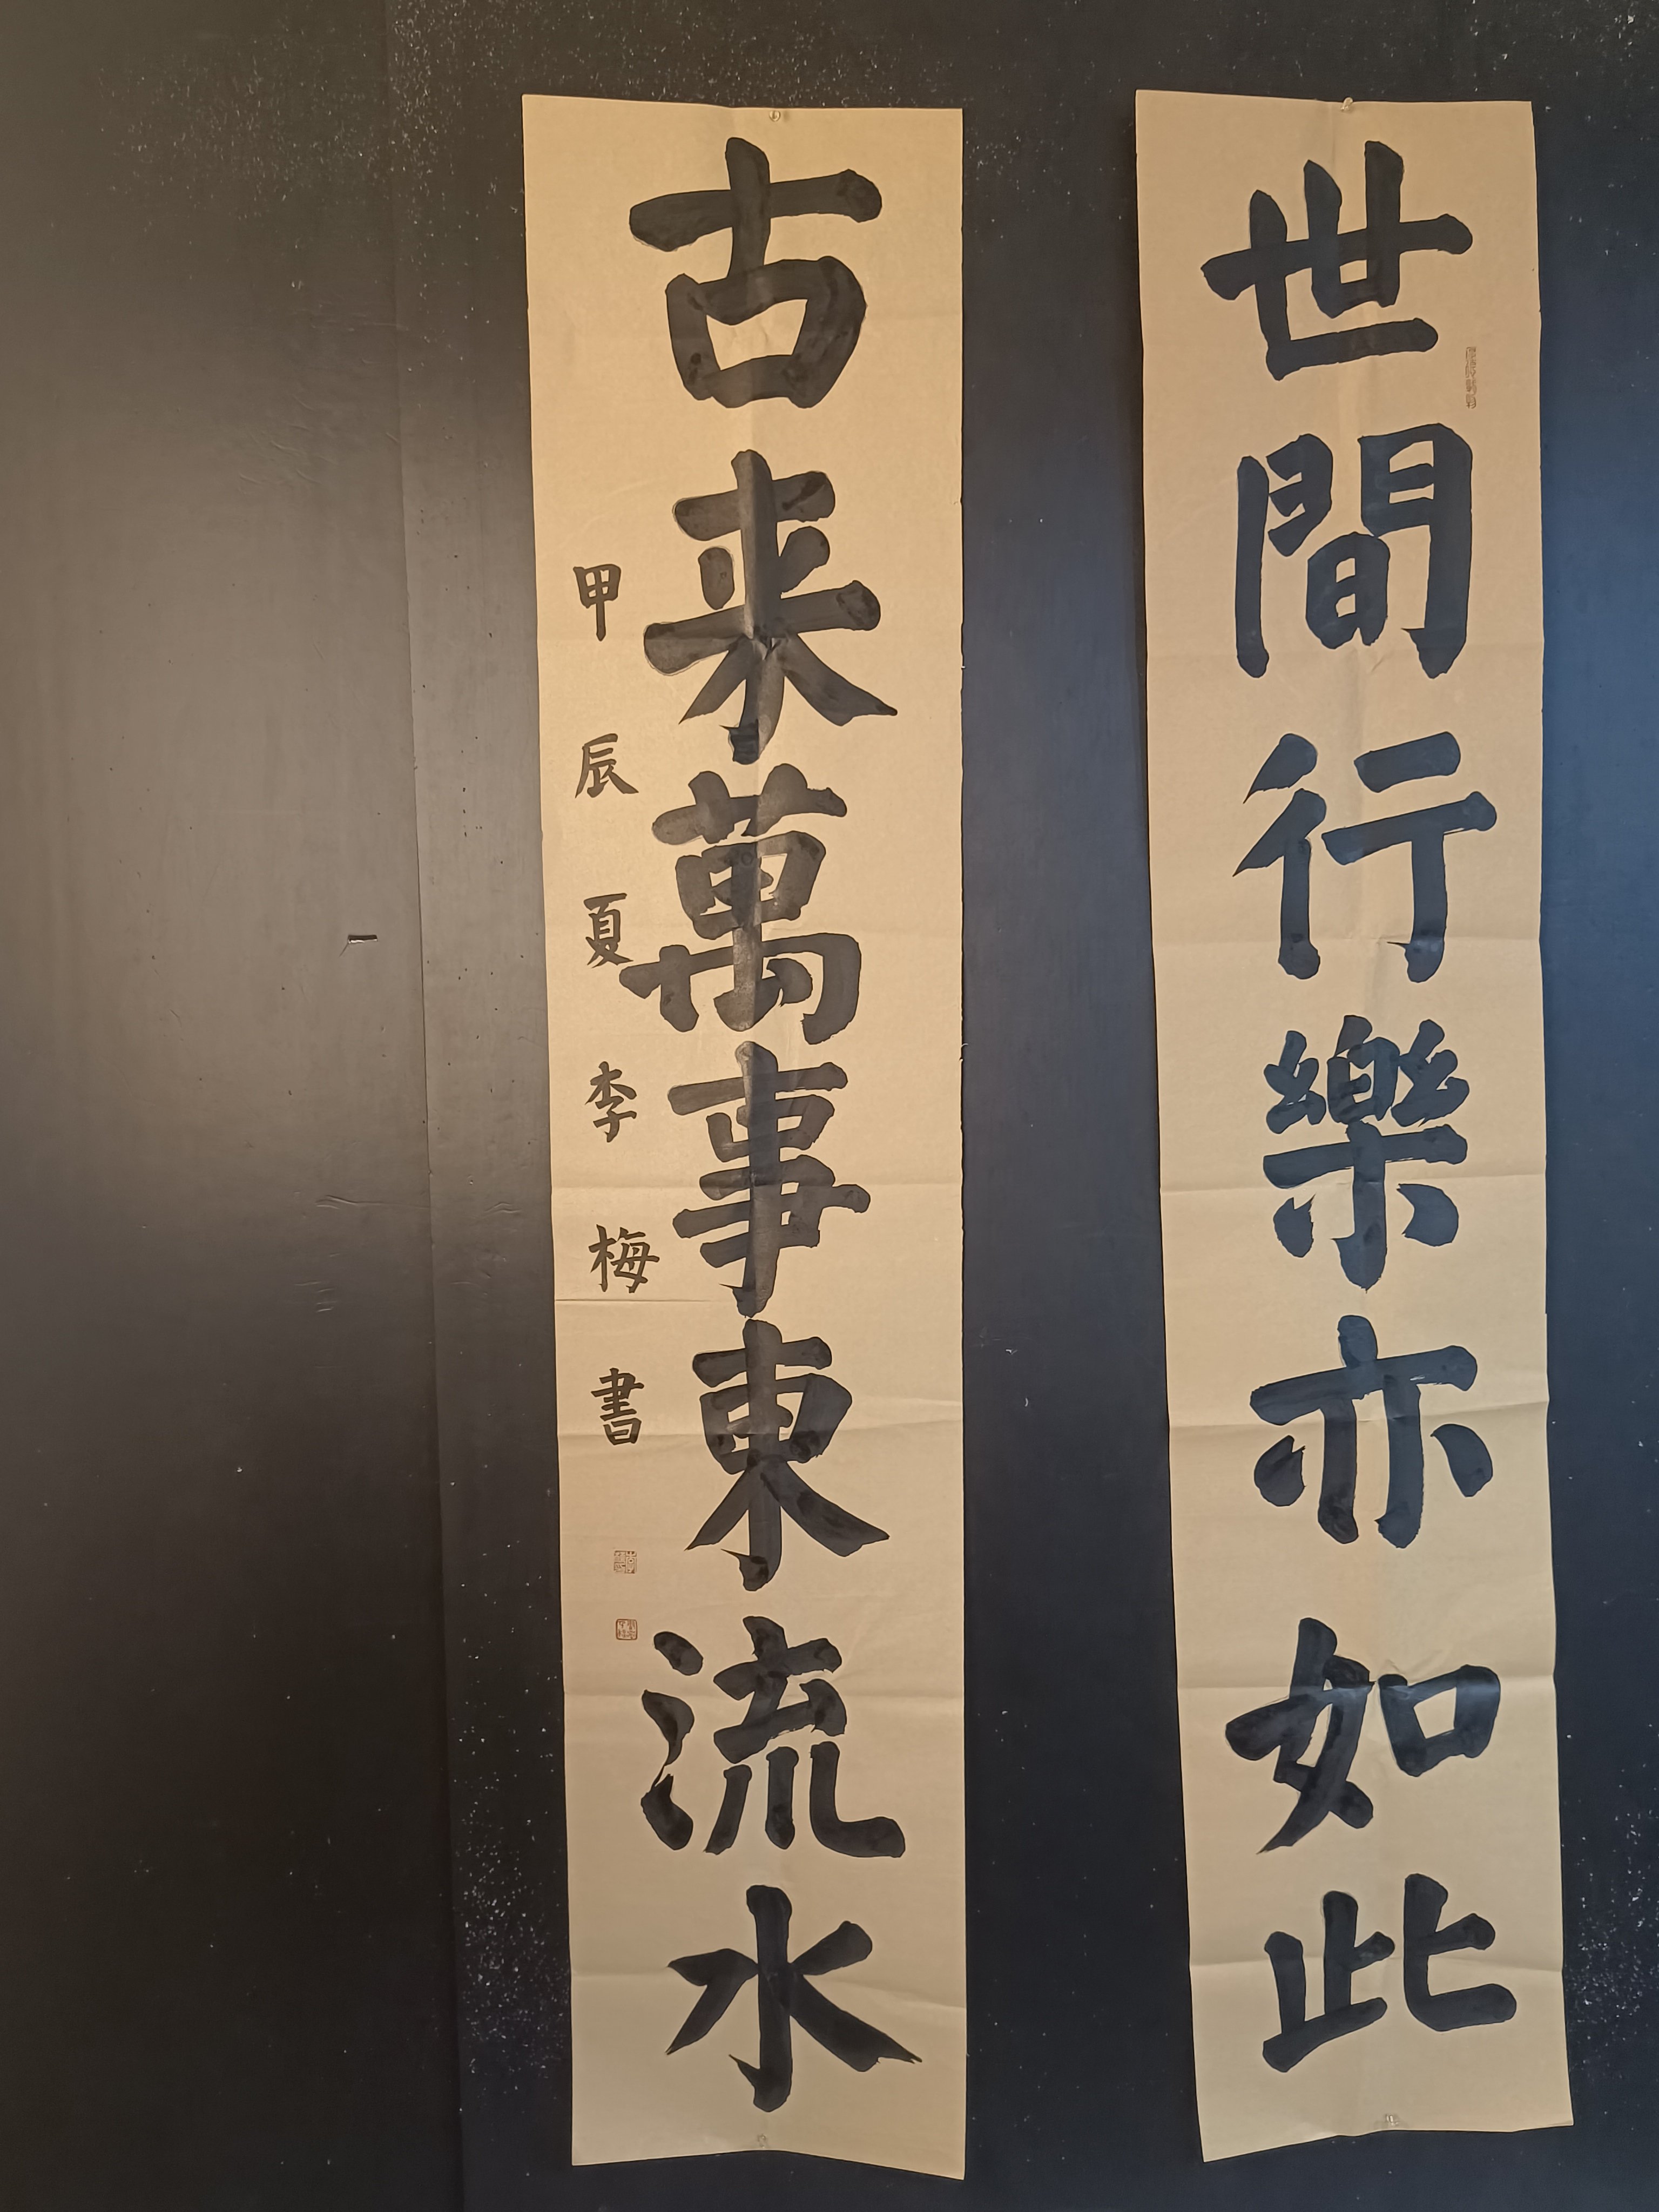 世間行樂亦如此
古来萬事東流水
甲辰夏李梅書